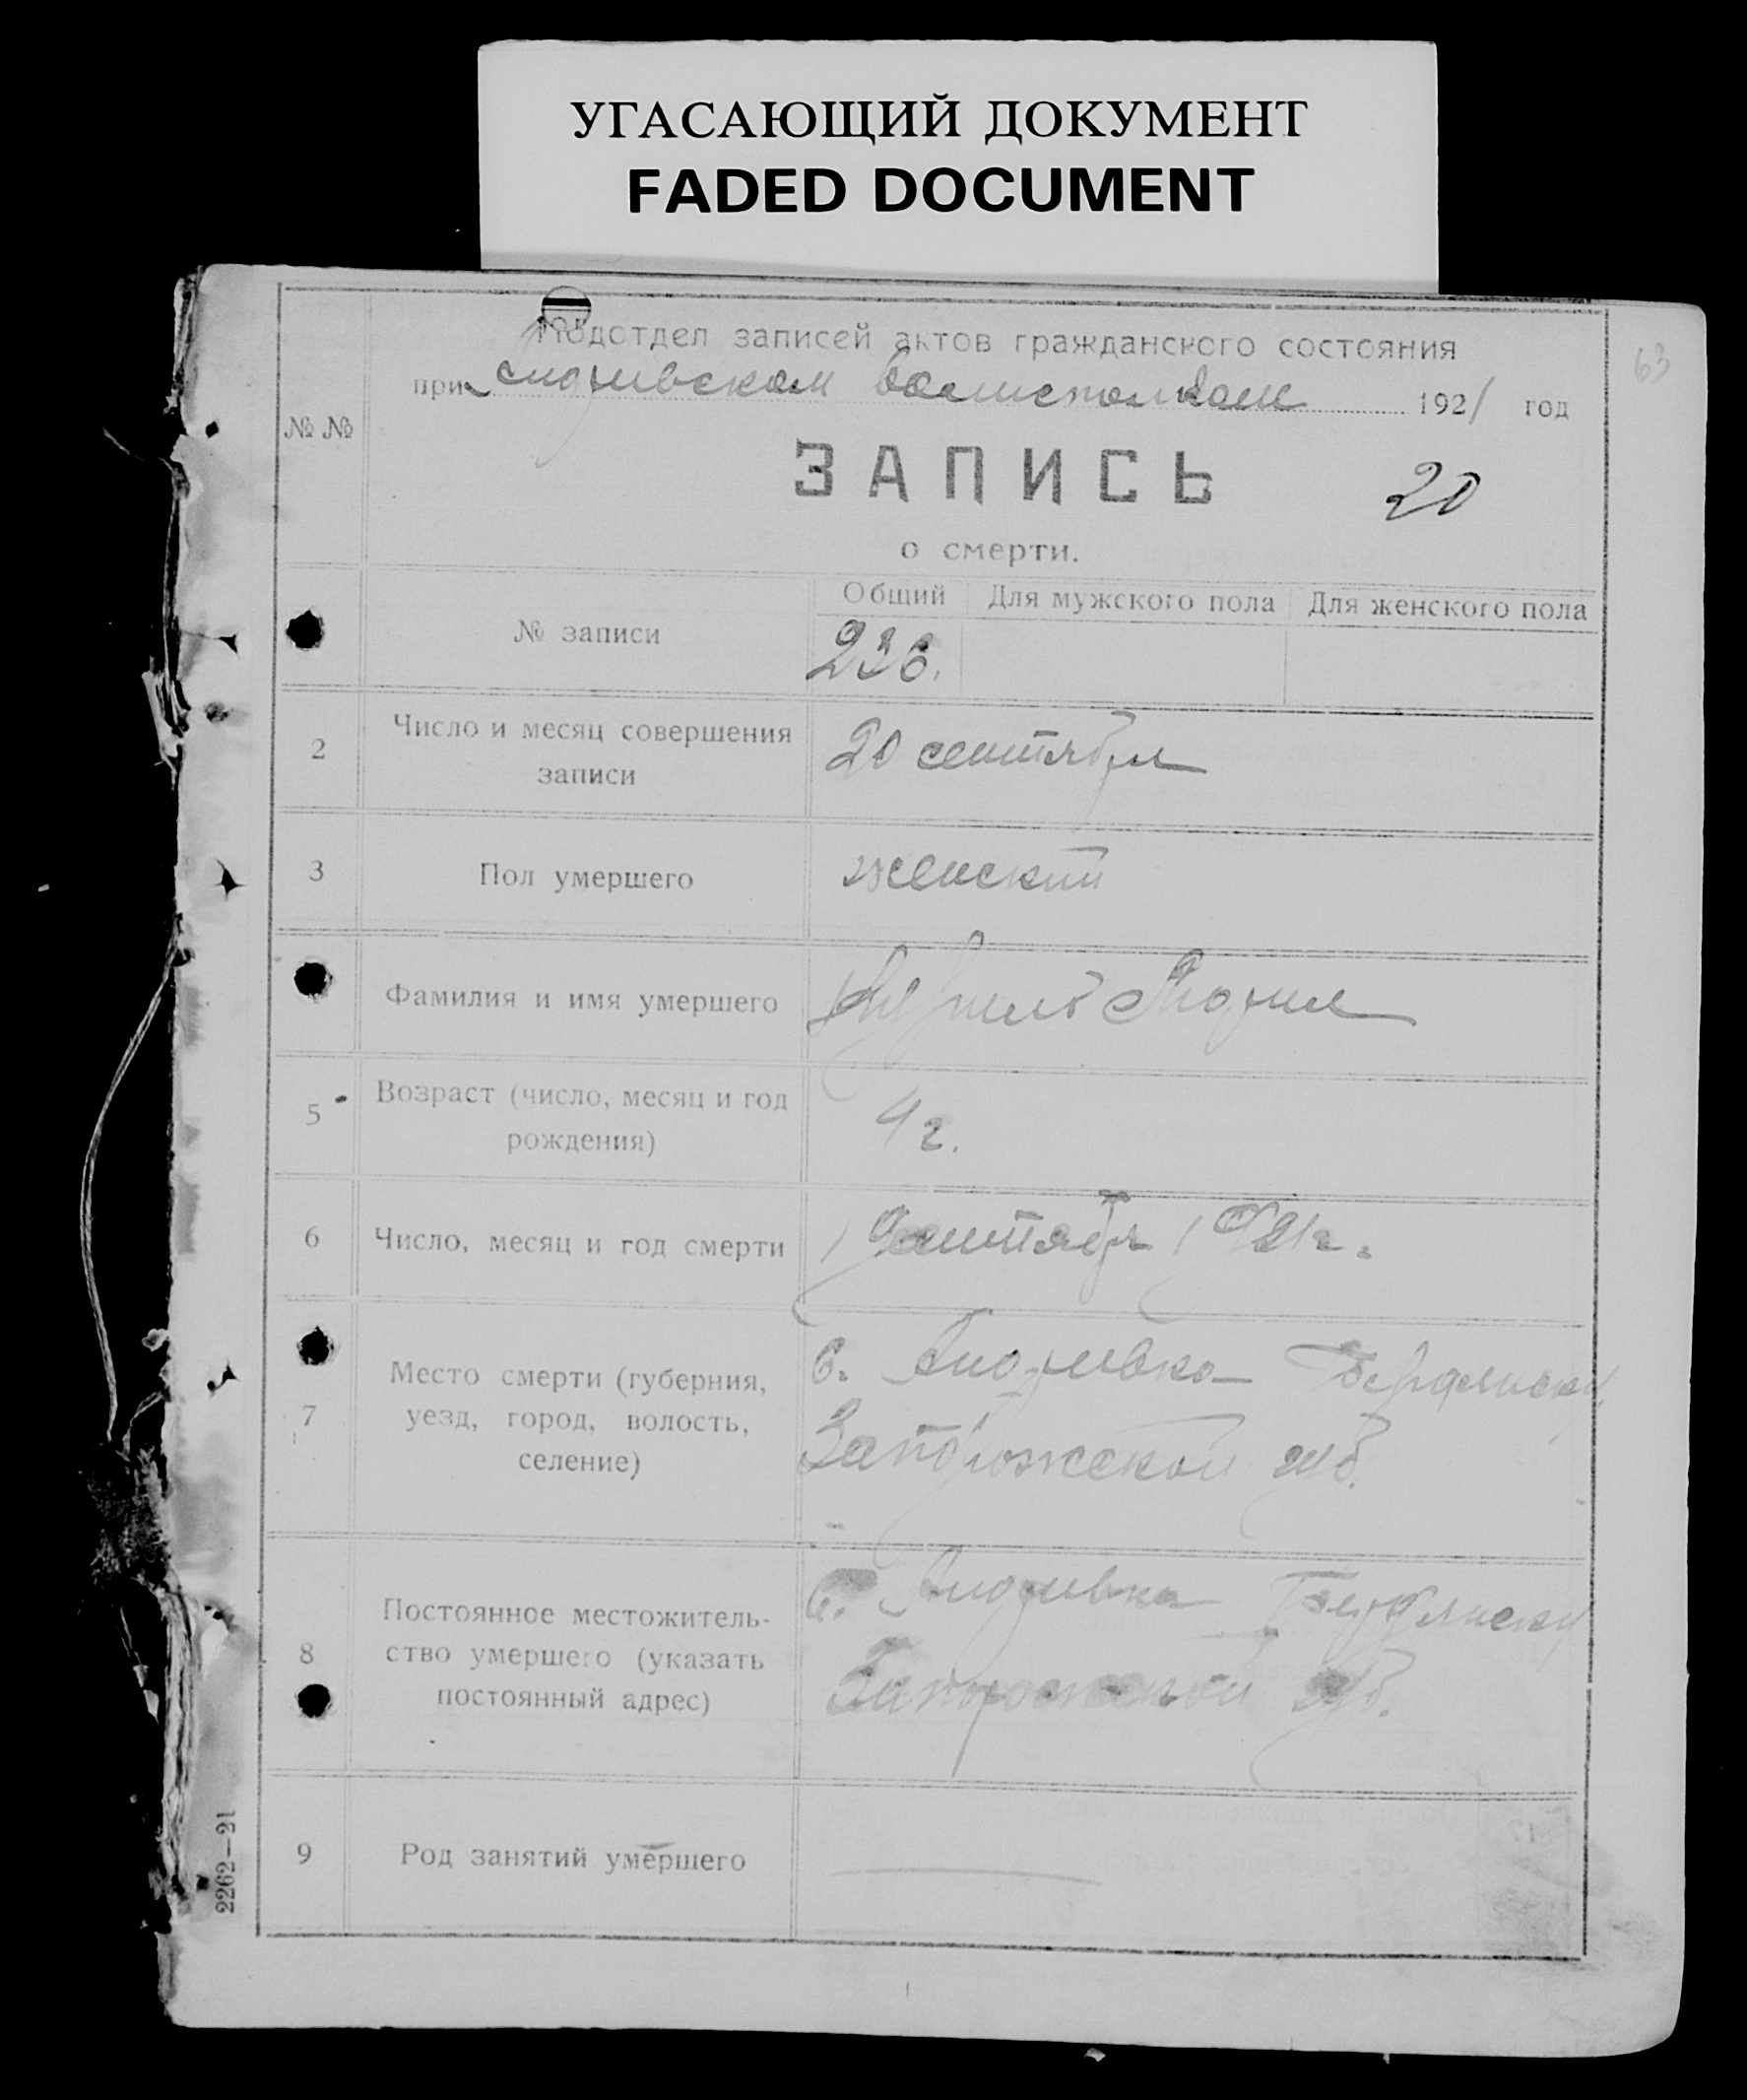 УГАСАЮЩИЙ ДОКУМЕНТ
FADED DOCUMENT
63
Подотдел записей актов гражданского состояния
при 1921 год
№ №
ЗАПИСЬ
20
о смерти.
Общий Для мужского пола Для женского пола
№ записи 236.
2 Число и месяц совершения
записи
20 сентября
3 Пол умершего женский
Фамилия и имя умершего Мария
5 Возраст (число, месяц и год
рождения)
4 г.
6 Число, месяц и год смерти 19 сентября 1921 г.
7 Место смерти (губерния,
уезд, город, волость,
селение)
с. Бердянск. у.
Запорожской губ.
8 Постоянное местожитель-
ство умершего (указать
постоянный адрес)
с. Бердянск. у.
Запорожской губ.
9 Род занятий умершего
2262—21